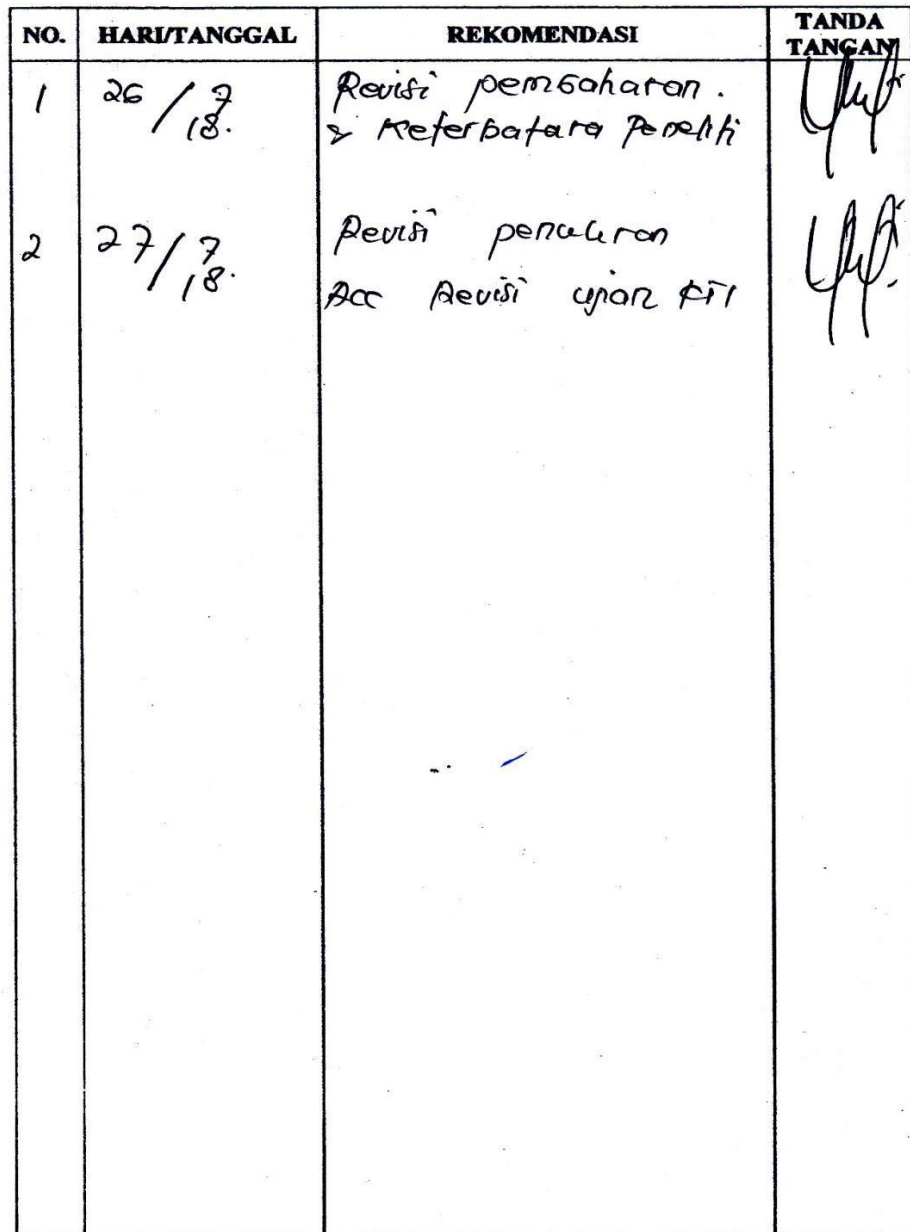 NO. HARI/TANGGAL REKOMENDASI TANDA TANGAN
1 26/7 18. Revisi pembahasan.
& Keterbatasa Peneliti
2 27/7 18. Revisi penulisan
Acc Revisi ujian KTI